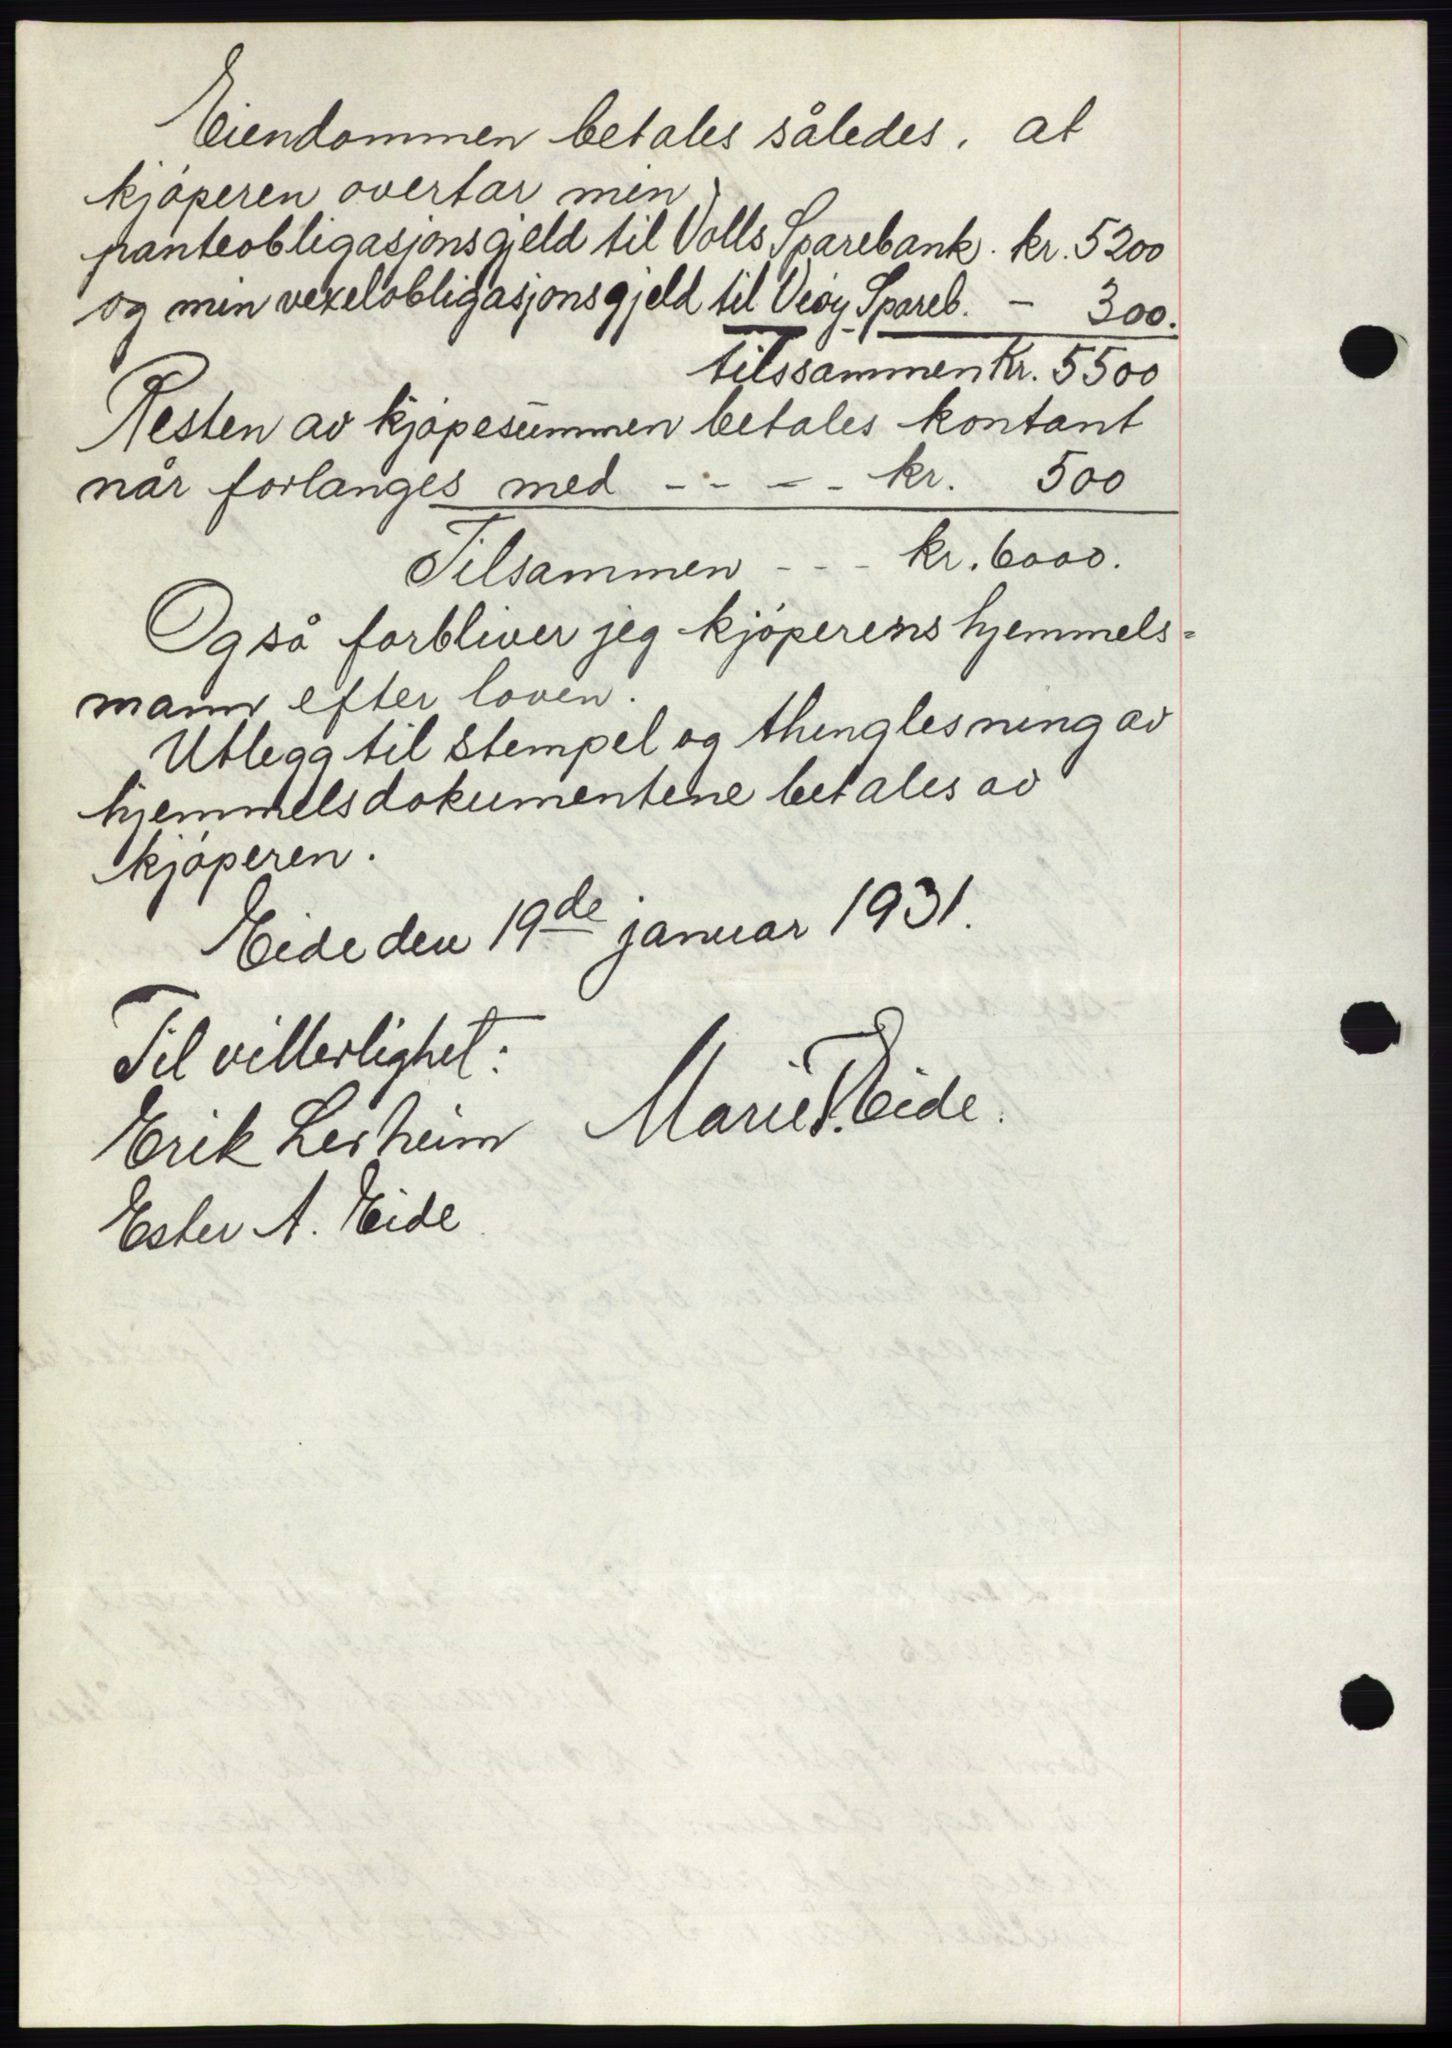 Eiendommen betales således, at
kjøperen overtar min
panteobligasjonsgjeld til Volls Sparebank. kr. 5200
og min vexelobligasjonsgjeld til Veøy Spareb. - 300.
tilssammen Kr. 5500
Resten av kjøpesummen betales kontant
når forlanges med - - - - kr. 500
Tilsammen - - - kr. 6000.
Også forbliver jeg kjøperens hjemmels=
mann efter loven.
Utlegg til stempel og thinglesning av
hjemmelsdokumentene betales av
kjøperen.
Eide den 19de januar 1931.
Til vitterlighet:
Erik Lerheim Marie P. Eide.
Ester A. Eide